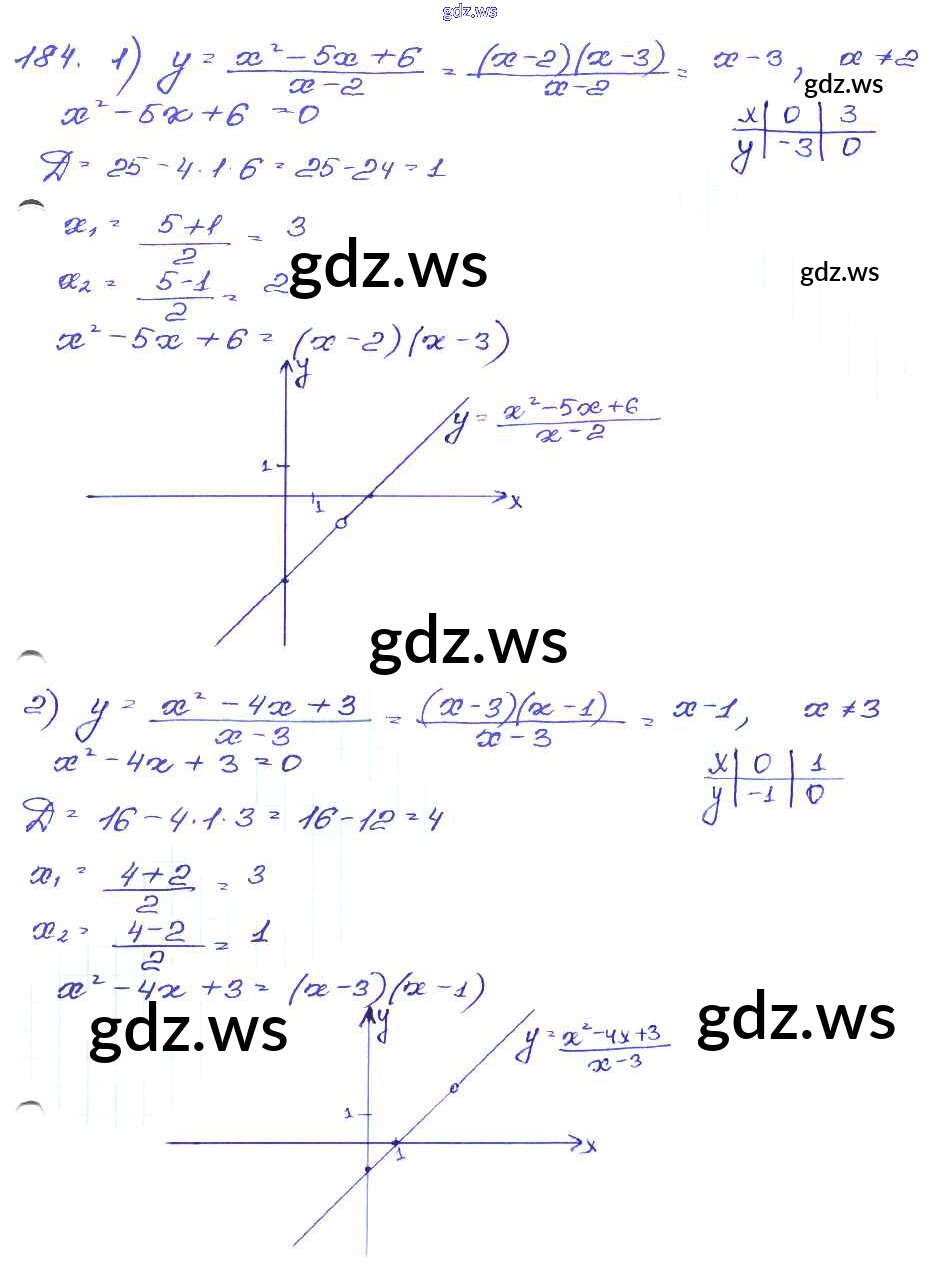 gdz.ws
184. 1) y = (x² – 5x + 6)/(x – 2) = ((x – 2)(x – 3))/(x – 2) = x – 3, x ≠ 2
gdz.ws
x² – 5x + 6 = 0
x | 0 | 3
y | –3 | 0
Д = 25 – 4·1·6 = 25 – 24 = 1
x₁ = (5+1)/2 = 3
gdz.ws
gdz.ws
x₂ = (5–1)/2 = 2
x² – 5x + 6 = (x – 2)(x – 3)
gdz.ws
y
y = (x² – 5x + 6)/(x – 2)
1
1
x
gdz.ws
2) y = (x² – 4x + 3)/(x – 3) = ((x – 3)(x – 1))/(x – 3) = x – 1, x ≠ 3
x² – 4x + 3 = 0
x | 0 | 1
y | –1 | 0
Д = 16 – 4·1·3 = 16 – 12 = 4
x₁ = (4+2)/2 = 3
x₂ = (4–2)/2 = 1
x² – 4x + 3 = (x – 3)(x – 1)
gdz.ws
gdz.ws
y
y = (x² – 4x + 3)/(x – 3)
1
1
x